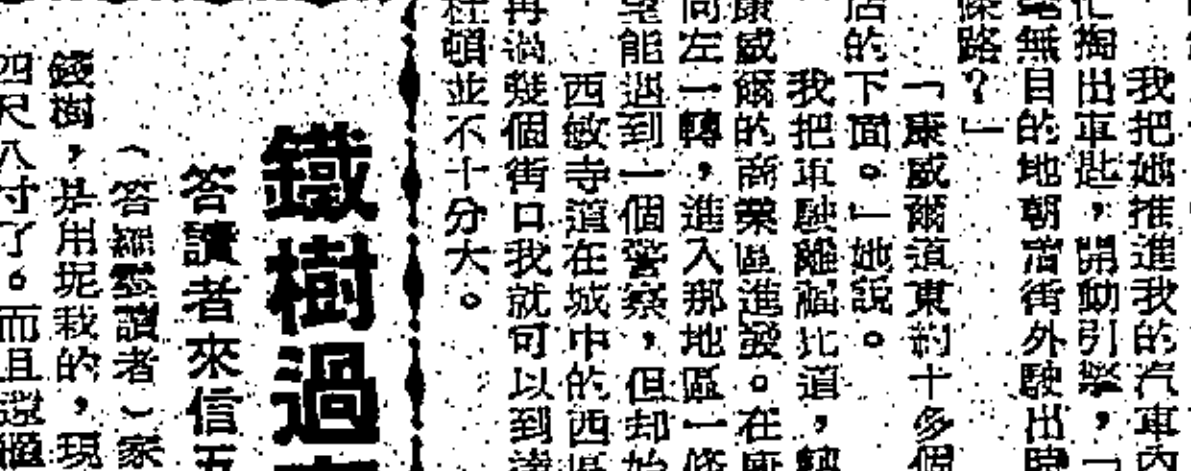 我把她推進我的汽車內
忙掏出車匙，開動引擎，「
毫無目的地朝着街外駛出時
條路？」
「康威爾道東約十多個
店的下面。」她說。
我把車駛離福比道，轉
康威爾的商業區進發。在
向左一轉，進入那地區一條
望能遇到一個警察，但却始
西敏寺道在城中的西區
再過幾個街口我就可以到達
頓並不十分大。
鐵樹過
答讀者來信五
（答羅　讀者）家
錢樹，是用坭栽的，現
四尺八寸了。而且還